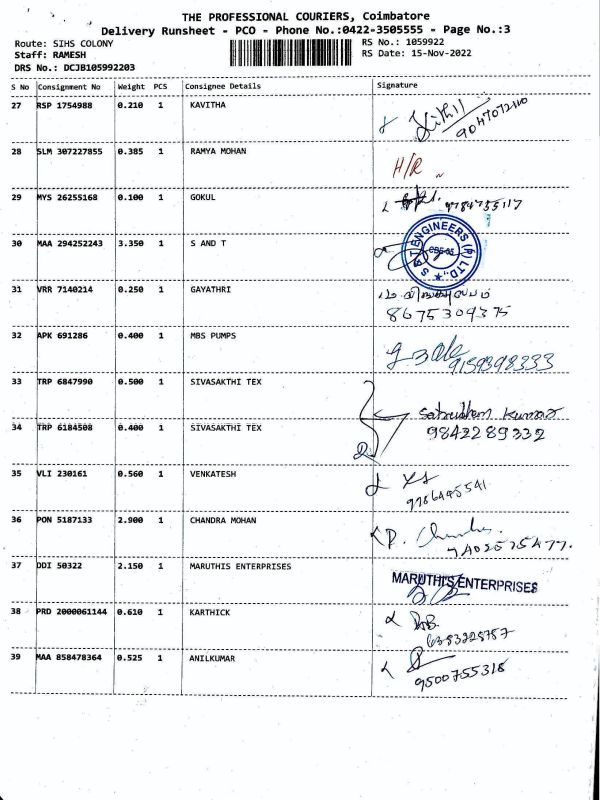 THE PROFESSIONAL COURIERS, Coimbatore
Delivery Runsheet - PCO - Phone No.:0422-3505555 - Page No.:3
Route: SIHS COLONY RS No.: 1059922
Staff: RAMESH RS Date: 15-Nov-2022
DRS No.: DCJB105992203
S No Consignment No Weight PCS Consignee Details Signature
27 RSP 1754988 0.210 1 KAVITHA
9047072110
28 SLM 307227855 0.385 1 RAMYA MOHAN H/R
29 MYS 26255168 0.100 1 GOKUL 9784755117
30 MAA 294252243 3.350 1 S AND T S & T ENGINEERS (P) LTD. CBE-05
31 VRR 7140214 0.250 1 GAYATHRI
8675309375
32 APK 691286 0.400 1 MBS PUMPS
9159398333
33 TRP 6847990 0.500 1 SIVASAKTHI TEX
Satrudhan Kumar
34 TRP 6184508 0.400 1 SIVASAKTHI TEX 9842289332
35 VLI 230161 0.560 1 VENKATESH
9786495541
36 PON 5187133 2.900 1 CHANDRA MOHAN
37 DDI 50322 2.150 1 MARUTHIS ENTERPRISES MARUTHI'S ENTERPRISES
38 PRD 2000061144 0.610 1 KARTHICK
6383228757
39 MAA 858478364 0.525 1 ANILKUMAR
9500755318